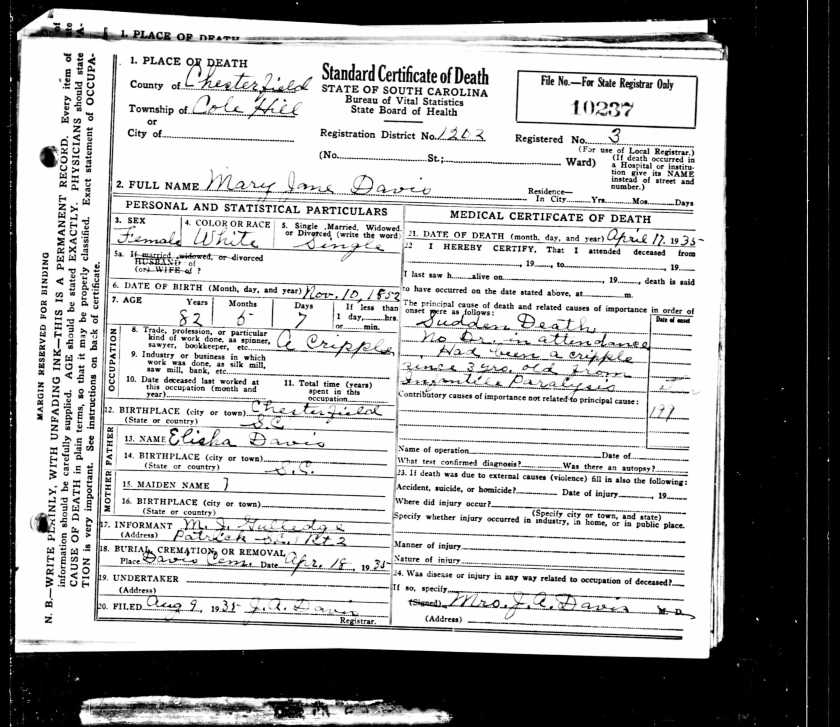 1. PLACE OF DEATH
1. PLACE OF DEATH
County of Chesterfield
Township of Cole Hill
or
City of
Standard Certificate of Death
STATE OF SOUTH CAROLINA
Bureau of Vital Statistics
State Board of Health
File No.—For State Registrar Only
10237
Registration District No. 1202 Registered No. 3
(For use of Local Registrar.)
(No. St.; Ward) (If death occurred in a Hospital or institution give its NAME instead of street and number.)
2. FULL NAME Mary Jane Davis
Residence—
In City Yrs. Mos. Days
PERSONAL AND STATISTICAL PARTICULARS
3. SEX Female
4. COLOR OR RACE White
5. Single, Married, Widowed, or Divorced (write the word) Single
5a. If married, widowed, or divorced
HUSBAND of
(or) WIFE of ?
6. DATE OF BIRTH (Month, day, and year) Nov. 10, 1852
7. AGE Years 82 Months 5 Days 7 If less than 1 day, hrs. or min.
OCCUPATION
8. Trade, profession, or particular kind of work done, as spinner, sawyer, bookkeeper, etc. A Cripple
9. Industry or business in which work was done, as silk mill, saw mill, bank, etc.
10. Date deceased last worked at this occupation (month and year)
11. Total time (years) spent in this occupation
12. BIRTHPLACE (city or town) Chesterfield
(State or country) S.C.
FATHER
13. NAME Elisha Davis
14. BIRTHPLACE (city or town)
(State or country) S.C.
MOTHER
15. MAIDEN NAME ?
16. BIRTHPLACE (city or town)
(State or country)
17. INFORMANT M. J. Gulledge
(Address) Patrick Rt 2
18. BURIAL, CREMATION, OR REMOVAL
Place Davis Cem. Date Apr. 18, 1935
19. UNDERTAKER
(Address)
20. FILED Aug 9, 1935 J. A. Davis
Registrar.
MEDICAL CERTIFCATE OF DEATH
21. DATE OF DEATH (month, day, and year) April 17, 1935
22 I HEREBY CERTIFY, That I attended deceased from
, 19 , to , 19
I last saw h alive on , 19 , death is said
to have occurred on the date stated above, at m.
The principal cause of death and related causes of importance in order of onset were as follows:
Date of onset
Sudden Death
No Dr. in attendance
Had been a cripple
since 3 yrs. old from
Infantile Paralysis
Contributory causes of importance not related to principal cause:
199
Name of operation Date of
What test confirmed diagnosis? Was there an autopsy?
23. If death was due to external causes (violence) fill in also the following:
Accident, suicide, or homicide? Date of injury , 19
Where did injury occur?
(Specify city or town, county, and state)
Specify whether injury occurred in industry, in home, or in public place.
Manner of injury
Nature of injury
24. Was disease or injury in any way related to occupation of deceased?
If so, specify
(Signed) Mrs. J. A. Davis M. D.
(Address)
MARGIN RESERVED FOR BINDING
N. B.—WRITE PLAINLY, WITH UNFADING INK—THIS IS A PERMANENT RECORD. Every item of
information should be carefully supplied. AGE should be stated EXACTLY. PHYSICIANS should state
CAUSE OF DEATH in plain terms, so that it may be properly classified. Exact statement of OCCUPA-
TION is very important. See instructions on back of certificate.